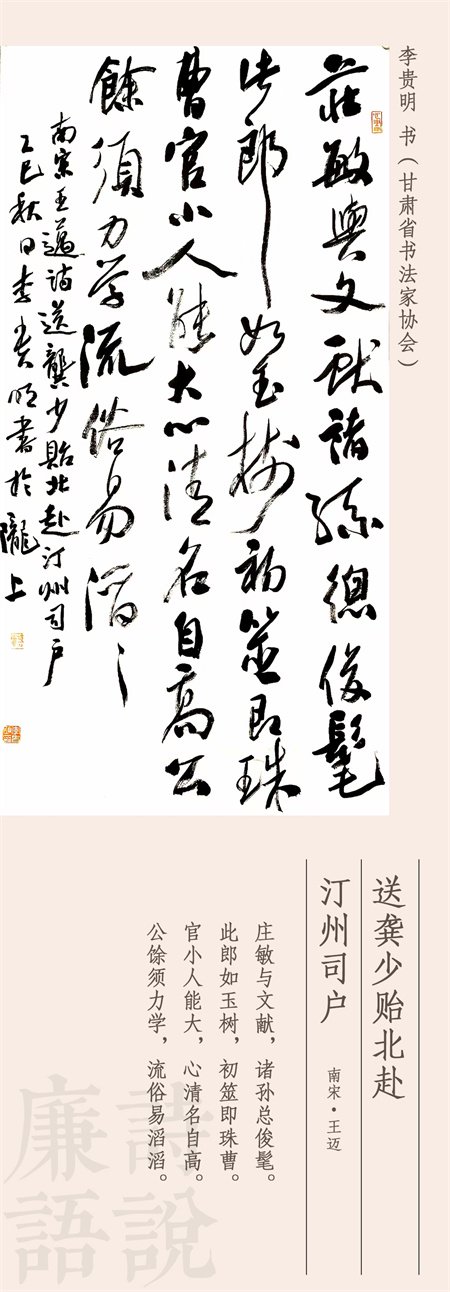 李贵明 书（甘肃省书法家协会）
莊敏與文献諸孫總俊髦
此郎如玉樹初筮即珠
曹官小人能大心清名自高公
餘須力学流俗易滔〻
南宋王邁詩送龔少貽北赴汀州司户
乙巳秋日李贵明書於隴上
送龚少贻北赴
汀州司户
南宋·王迈
庄敏与文献，诸孙总俊髦。
此郎如玉树，初筮即珠曹。
官小人能大，心清名自高。
公馀须力学，流俗易滔滔。
詩說
廉語